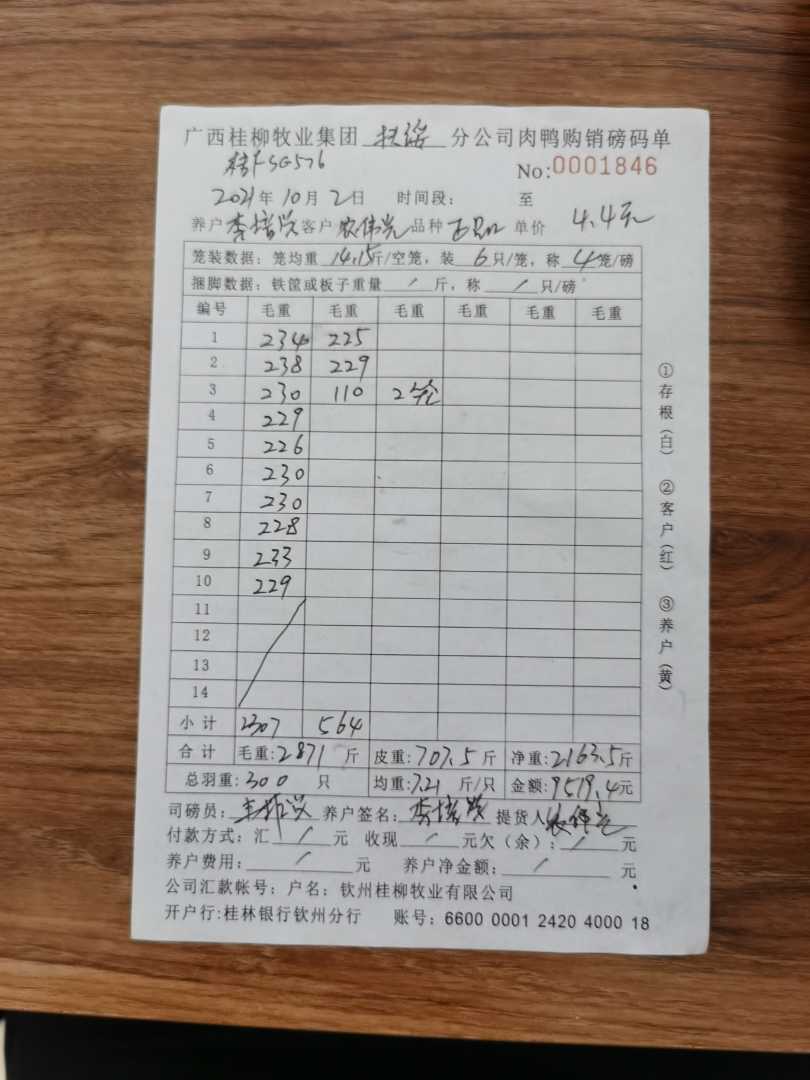 广西桂柳牧业集团 扶绥 分公司肉鸭购销磅码单
桂FSG576 No:0001846
2021年10月2日 时间段: 至
养户 李培兴 客户 农伟光 品种 单价 4.4元
笼装数据:笼均重 14.15斤/空笼,装 6只/笼,称 4笼/磅
捆脚数据:铁筐或板子重量 / 斤,称 / 只/磅
编号 毛重 毛重 毛重 毛重 毛重 毛重
1 234 225
2 238 229
3 230 110 2笼
4 229
5 226
6 230
7 230
8 228
9 233
10 229
11
12
13
14
小计 2307 564
合计 毛重:2871 斤 皮重:707.5斤 净重:2163.5斤
总羽重:300 只 均重:7.21 斤/只 金额:9519.4元
司磅员: 养户签名:李培兴 提货人 农伟光
付款方式:汇 / 元 收现 / 元欠(余): / 元
养户费用: / 元 养户净金额: / 元
公司汇款帐号:户名:钦州桂柳牧业有限公司
开户行:桂林银行钦州分行 账号:6600 0001 2420 4000 18
①存根(白) ②客户(红) ③养户(黄)